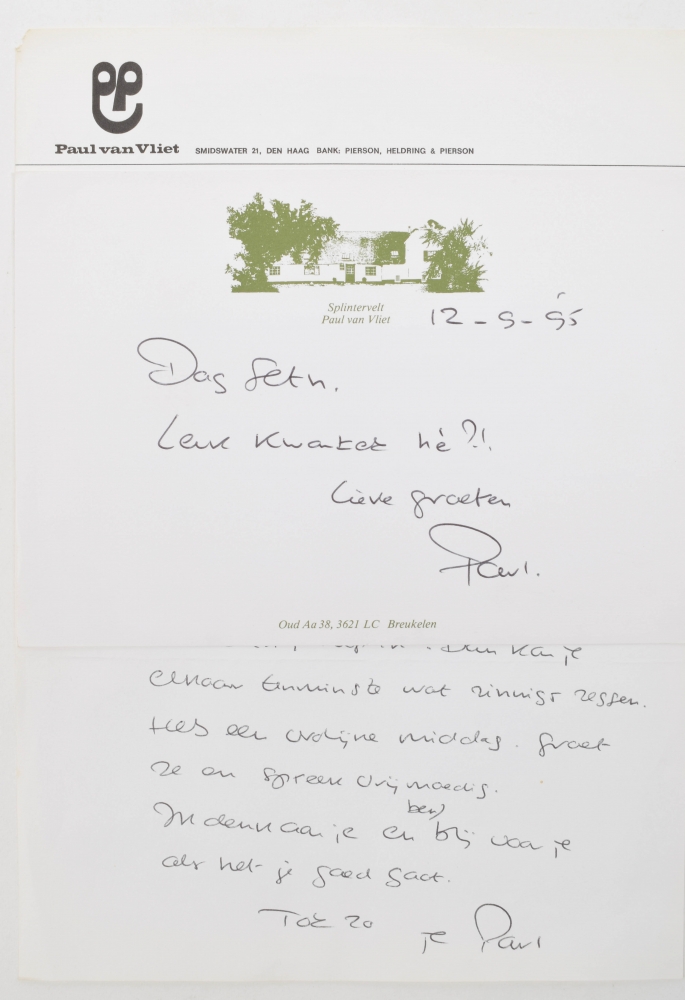 Paul van Vliet SMIDSWATER 21, DEN HAAG BANK: PIERSON, HELDRING & PIERSON
Splintervelt
Paul van Vliet
12-9-95
Dag Seth.
Leuk kwartet hè?!.
Lieve groeten
Paul.
Oud Aa 38, 3621 LC Breukelen
Dan kan je
elkaar tenminste wat zinnigs zeggen.
Heb een vrolijke middag. Groet
ze en spreek vrijmoedig.
Ik denk aan je en ben blij voor je
als het je goed gaat.
Tot zo je Paul